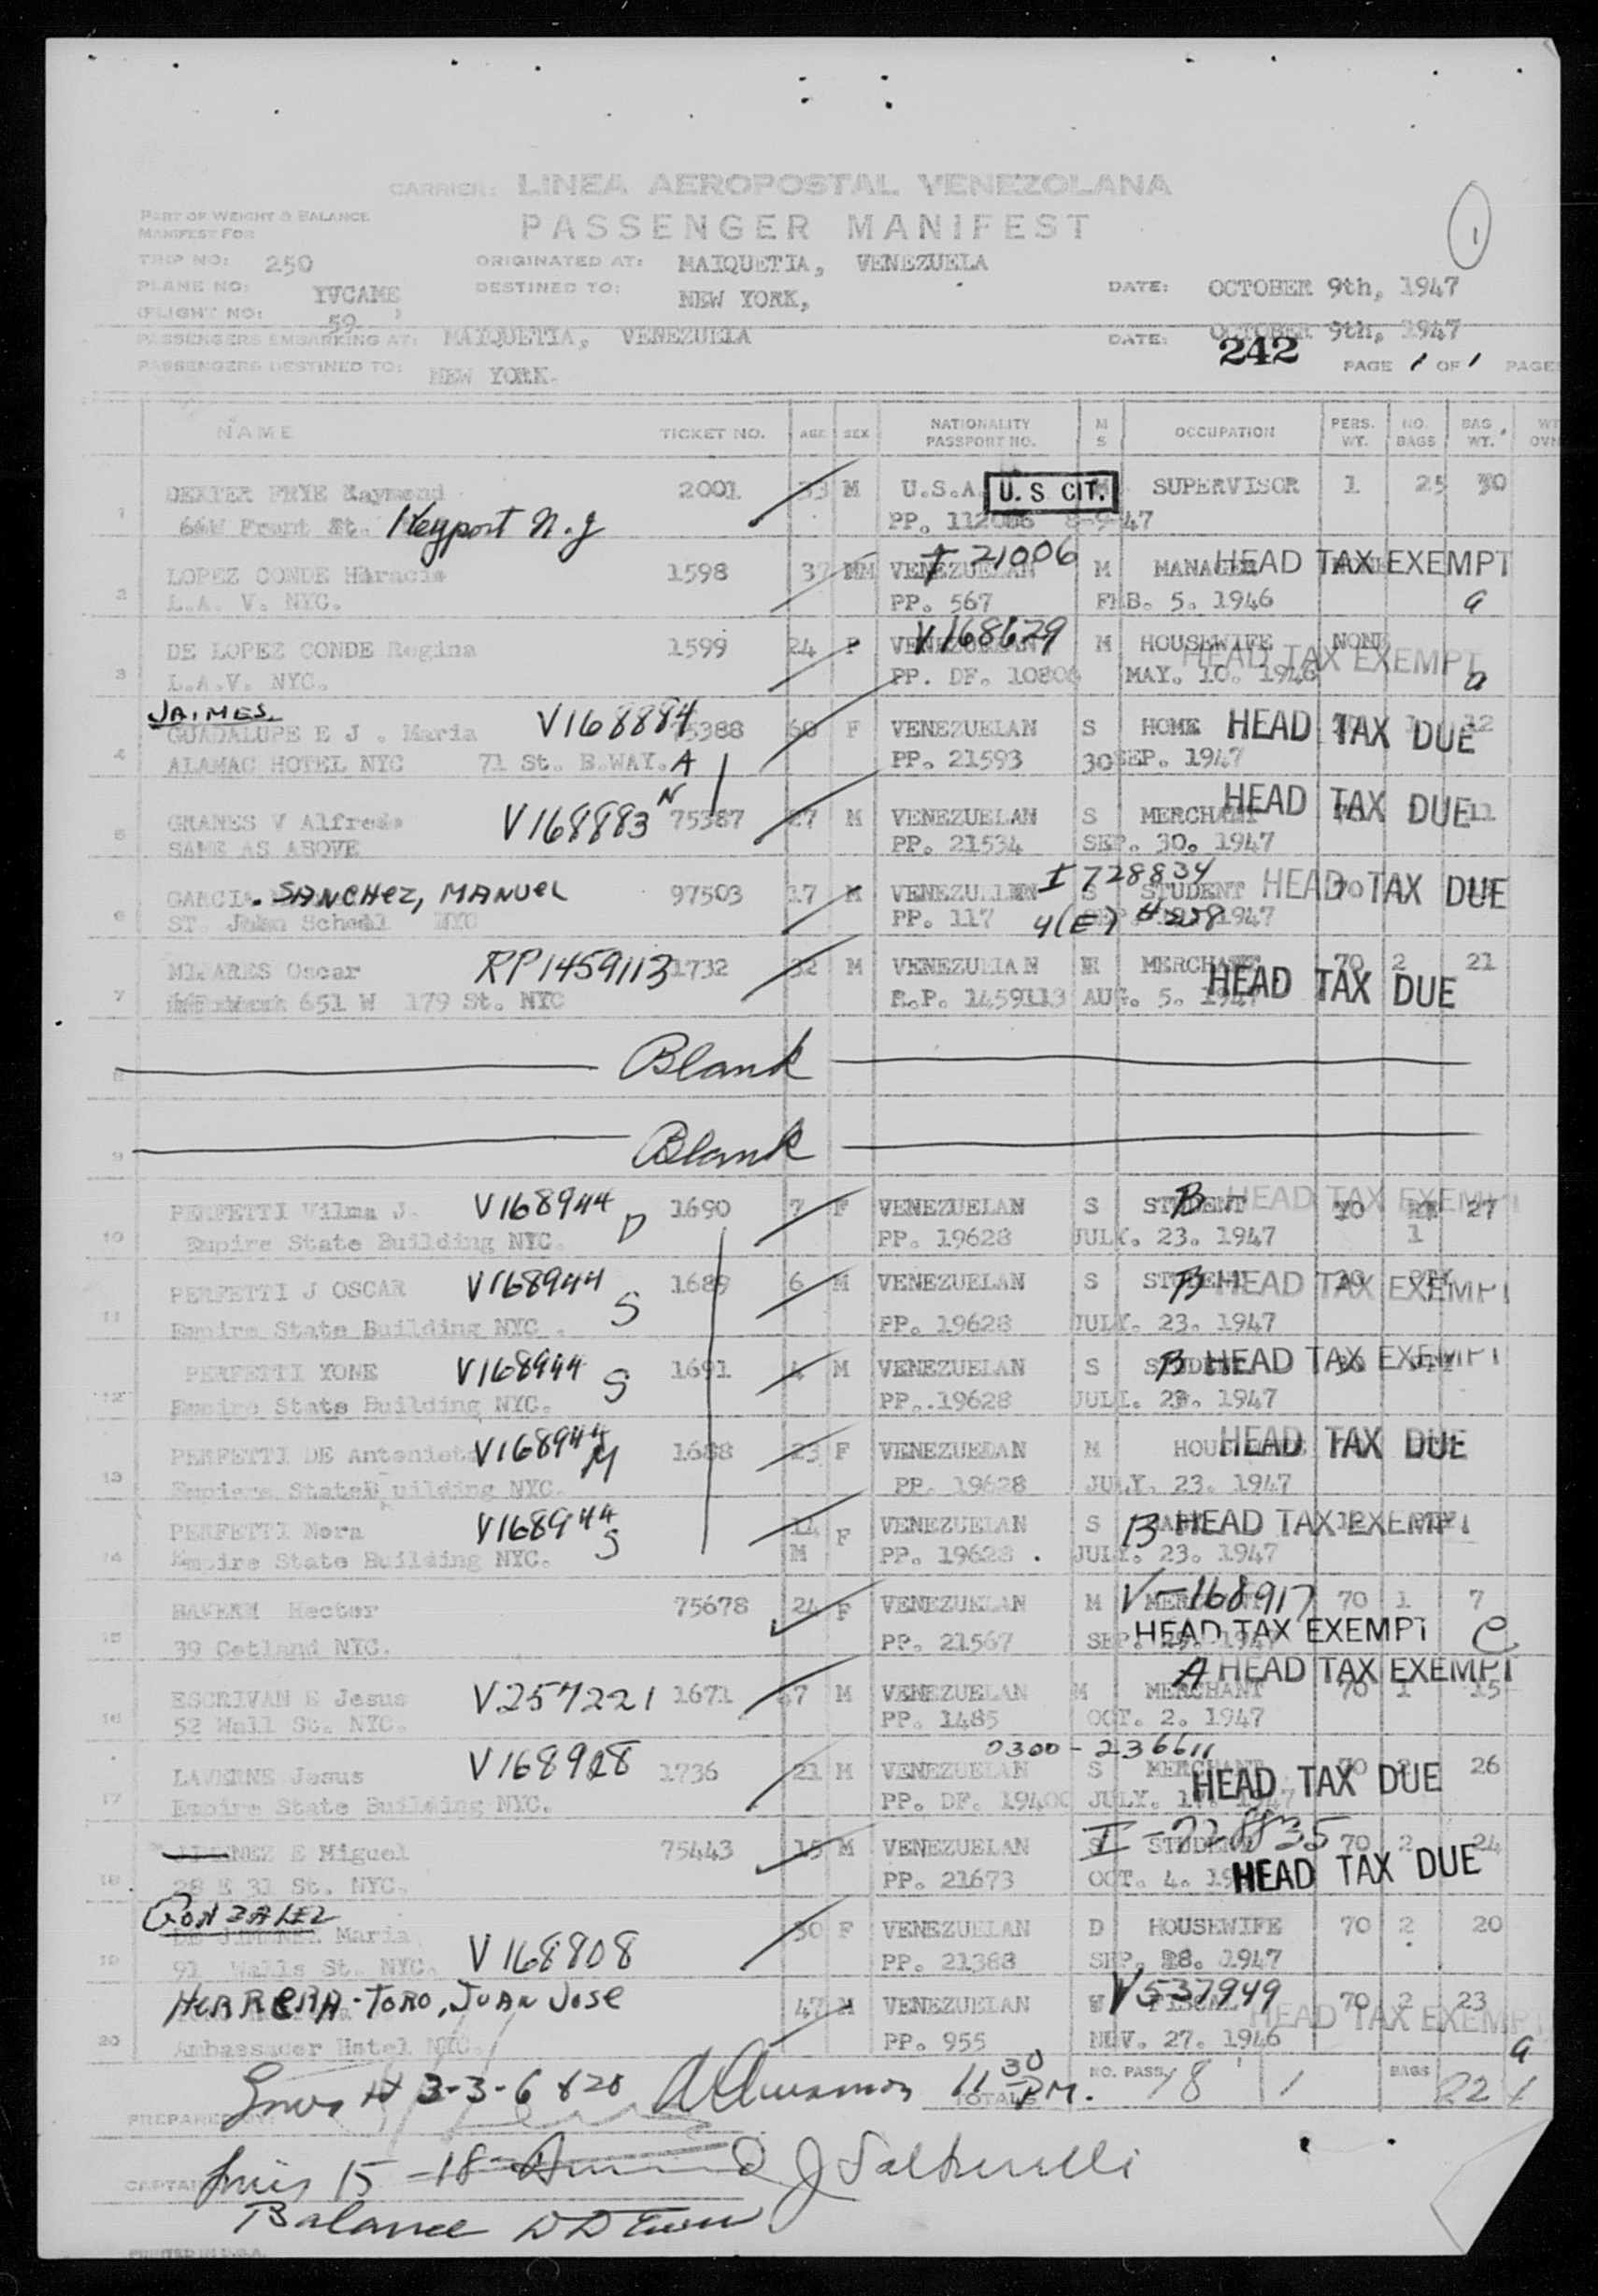 CARRIER: LINEA AEROPOSTAL VENEZOLANA
PART OF WEIGHT & BALANCE
MANIFEST FOR
PASSENGER MANIFEST
1
TRIP NO: 250
ORIGINATED AT: MAIQUETIA, VENEZUELA
PLANE NO: YVCAME
DESTINED TO: NEW YORK,
DATE: OCTOBER 9th, 1947
(FLIGHT NO: 59 )
PASSENGERS EMBARKING AT: MAIQUETIA, VENEZUELA
DATE: OCTOBER 9th, 1947
242
PAGE 1 OF 1 PAGES
PASSENGERS DESTINED TO: NEW YORK.
NAME TICKET NO. AGE SEX NATIONALITY PASSPORT NO. M S OCCUPATION PERS. WT. NO. BAGS BAG. WT. WT OVN
DEXTER FRYE Raymond 2001 33 M U.S.A. U.S CIT. SUPERVISOR 1 25 30
1 Front St. Keyport N.J PP. 112086 8-9-47
LOPEZ CONDE 1598 37 M VENEZUELAN I 21006 M MANAGER HEAD TAX EXEMPT
2 L.A. V. NYC. PP. 567 FEB. 5. 1946 a
DE LOPEZ CONDE Regina 1599 24 F VENEZUELAN V168629 M HOUSEWIFE NONE HEAD TAX EXEMPT
3 L.A.V. NYC. PP. DF. 10808 MAY. 10. 1946 a
JAIMES
GUADALUPE E J . Maria V168884 75388 68 F VENEZUELAN S HOME HEAD TAX DUE 12
4 ALAMAC HOTEL NYC 71 St. B.WAY. A PP. 21593 30 SEP. 1947
GRANES V Alfredo V168883 N 75387 27 M VENEZUELAN S MERCHANT HEAD TAX DUE 11
5 SAME AS ABOVE PP. 21534 SEP. 30. 1947
GARCIA. SANCHEZ, MANUEL 97503 17 M VENEZUELAN I 728834 S STUDENT 70 HEAD TAX DUE
6 ST. John School NYC PP. 117 4(E) # 258 1947
MIJARES Oscar RP1459113 1732 32 M VENEZUELIAN M MERCHANT 70 2 21 HEAD TAX DUE
7 651 W 179 St. NYC R.P. 1459113 AUG. 5. 1947
8 Blank
9 Blank
PERFETTI Vilma J. V168944 D 1690 7 F VENEZUELAN S STUDENT B HEAD TAX EXEMPT 27
10 Empire State Building NYC. PP. 19628 JULY. 23. 1947 1
PERFETTI J OSCAR V168944 S 1689 6 M VENEZUELAN S STUDENT B HEAD TAX EXEMPT
11 Empire State Building NYC . PP. 19628 JULY. 23. 1947
PERFETTI YONE V168944 S 1691 4 M VENEZUELAN S STUDENT B HEAD TAX EXEMPT
12 Empire State Building NYC. PP..19628 JULY. 23. 1947
PERFETTI DE Antonieta V168944 M 1688 23 F VENEZUELAN M HOUSEWIFE HEAD TAX DUE
13 Empiere StateB uilding NYC. PP. 19628 JULY. 23. 1947
PERFETTI Nora V168944 S 11 F VENEZUELAN S B HEAD TAX EXEMPT
14 Empire State Building NYC. M PP. 19628 . JULY. 23. 1947
Hector 75678 24 F VENEZUELAN M MERCHANT V-168917 70 1 7
15 39 Cotland NYC. PP. 21567 SEP. 29. 1947 HEAD TAX EXEMPT C
ESCRIVAN E Jesus V257221 1671 7 M VENEZUELAN M MERCHANT A HEAD TAX EXEMPT 70 1 15
16 52 Wall St. NYC. PP. 1485 OCT. 2. 1947
0300-236611
LAVERNE Jesus V168928 1736 21 M VENEZUELAN S MERCHANT 70 2 26 HEAD TAX DUE
17 Empire State Building NYC. PP. DF. 19400 JULY. 1947
JIMENEZ E Miguel 75443 15 M VENEZUELAN S STUDENT I-728835 70 2 24
18 28 E 31 St. NYC. PP. 21673 OCT. 4. 19 HEAD TAX DUE
GONZALEZ
DE JIMENEZ Maria 30 F VENEZUELAN D HOUSEWIFE 70 2 20
19 91 Walls St. NYC. V168808 PP. 21368 SEP. 18. 1947
HERRERA-TORO, JUAN JOSE 47 M VENEZUELAN V537949 70 2 23 HEAD TAX EXEMPT
20 Ambassador Hotel NYC. PP. 955 NOV. 27. 1946 a
3-3-6 &20 11 30 P.M. TOTALS NO. PASS. 18 1 BAGS 22 1
PREPARED BY:
CAPTAIN 15-18 J Salturelli
Balance